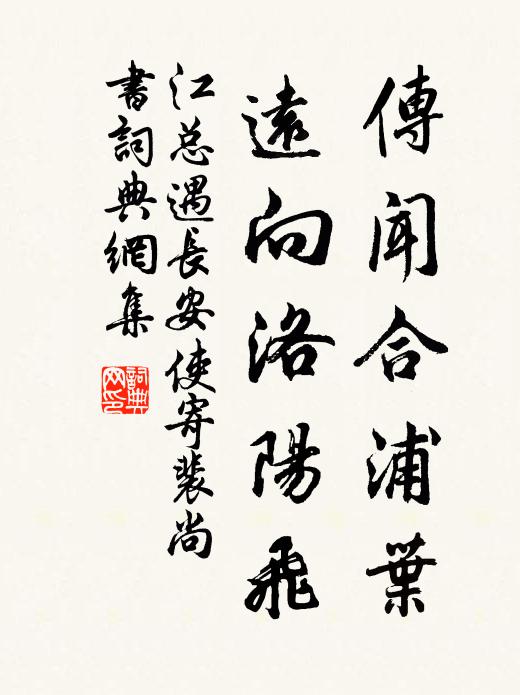 傳聞合浦葉
遠向洛陽飛
江总遇長安使寄裴尚
書詞典網集
詞典
网印